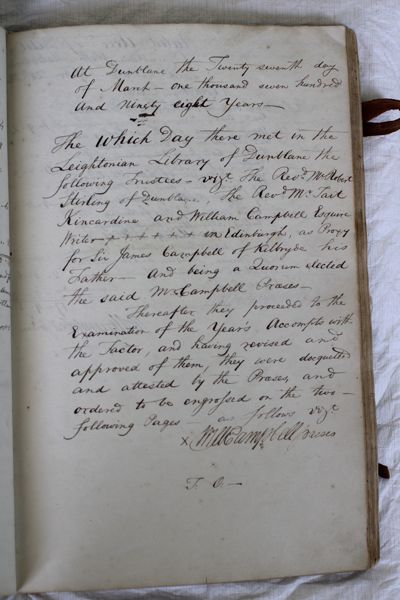 At Dunblane the Twenty seventh day
of March – one thousand seven hundred
and ninety eight Years –
The Which Day there met in the
Leightonian Library of Dunblane the
following Trustees – vizt. The Revd. Mr. Robert
Stirling of Dunblane, The Revd. Mr. Tait
Kincardine and William Campbell Esquire
Writer in Edinburgh, as Proxy
for Sir James Campbell of Kilbryde his
Father – And being a Quorum elected
the said Mr. Campbell Preses –
Thereafter they proceeded to the
Examination of the Years Accompts with
the Factor, and having revised and
approved of them, they were docqueted
and attested by the Preses, and
ordered to be engrossed on the two –
following Pages – as follows vizt.
x Wm Campbell preses
T. O. –